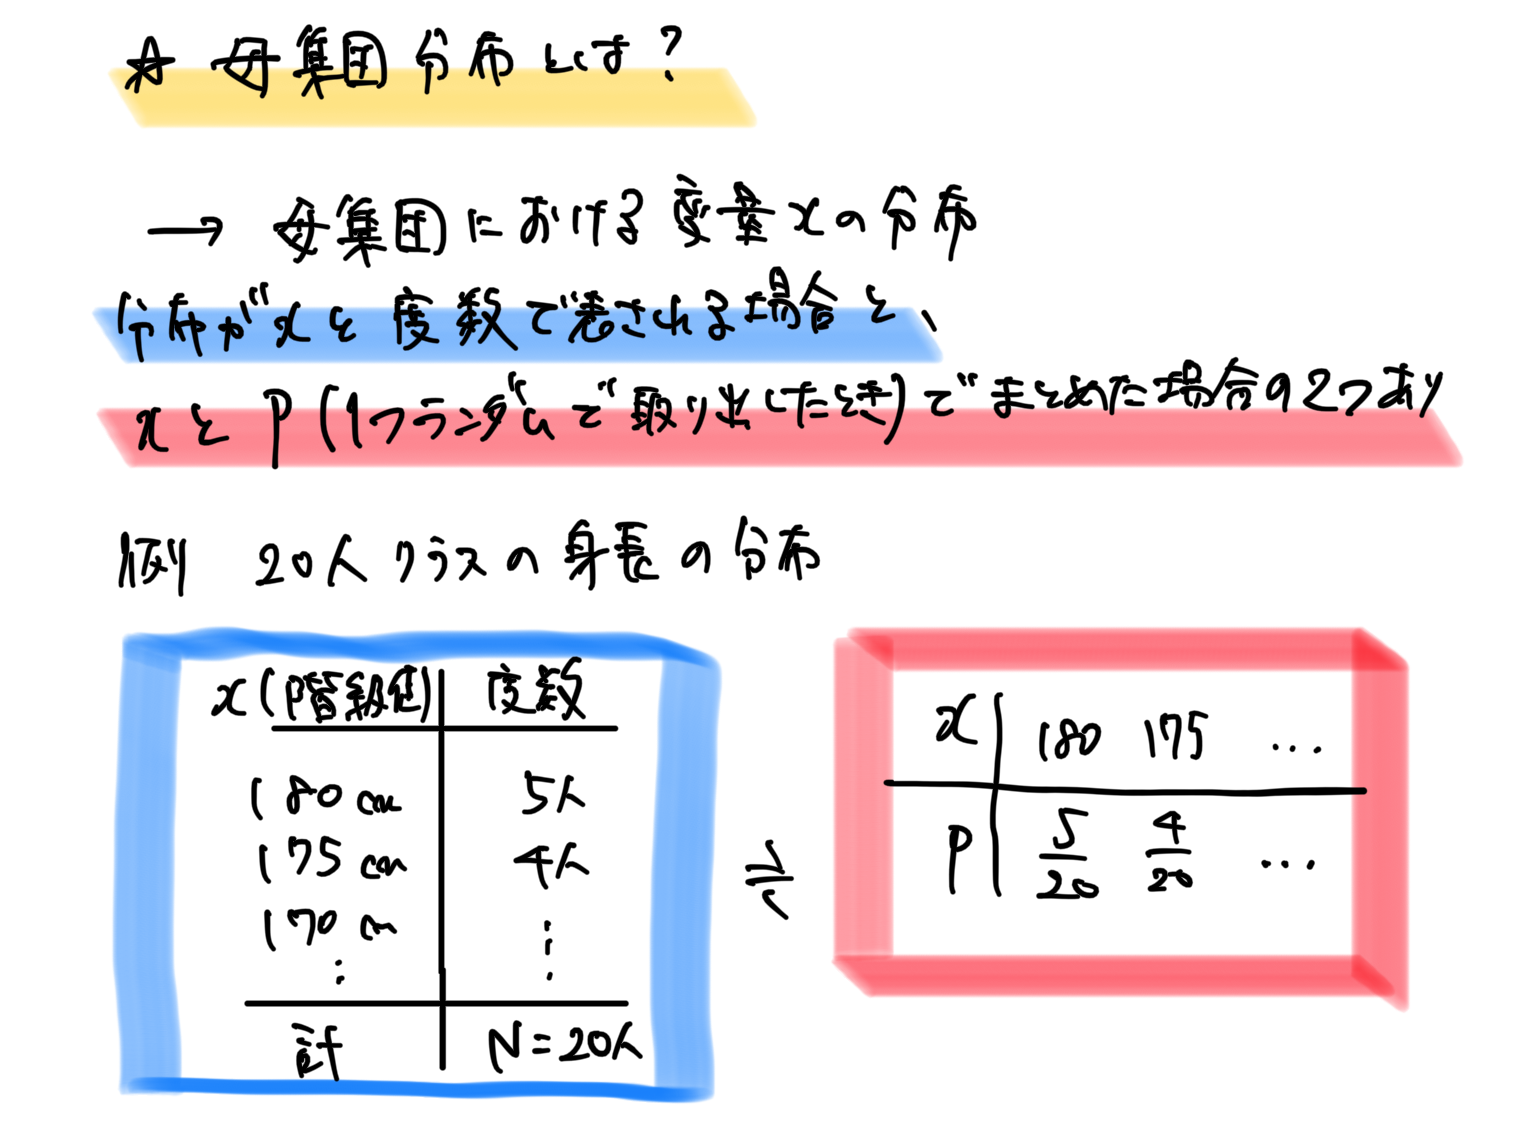 ☆ 母集団分布とは?
→ 母集団における変量xの分布
分布がxと度数で表される場合と、
xとP(1つランダムで取り出したとき)でまとめた場合の2つあり
例 20人クラスの身長の分布
x(階級値) 度数
180cm 5人
175cm 4人
170cm ⋮
⋮
計 N=20人
≒
x 180 175 …
P 5/20 4/20 …